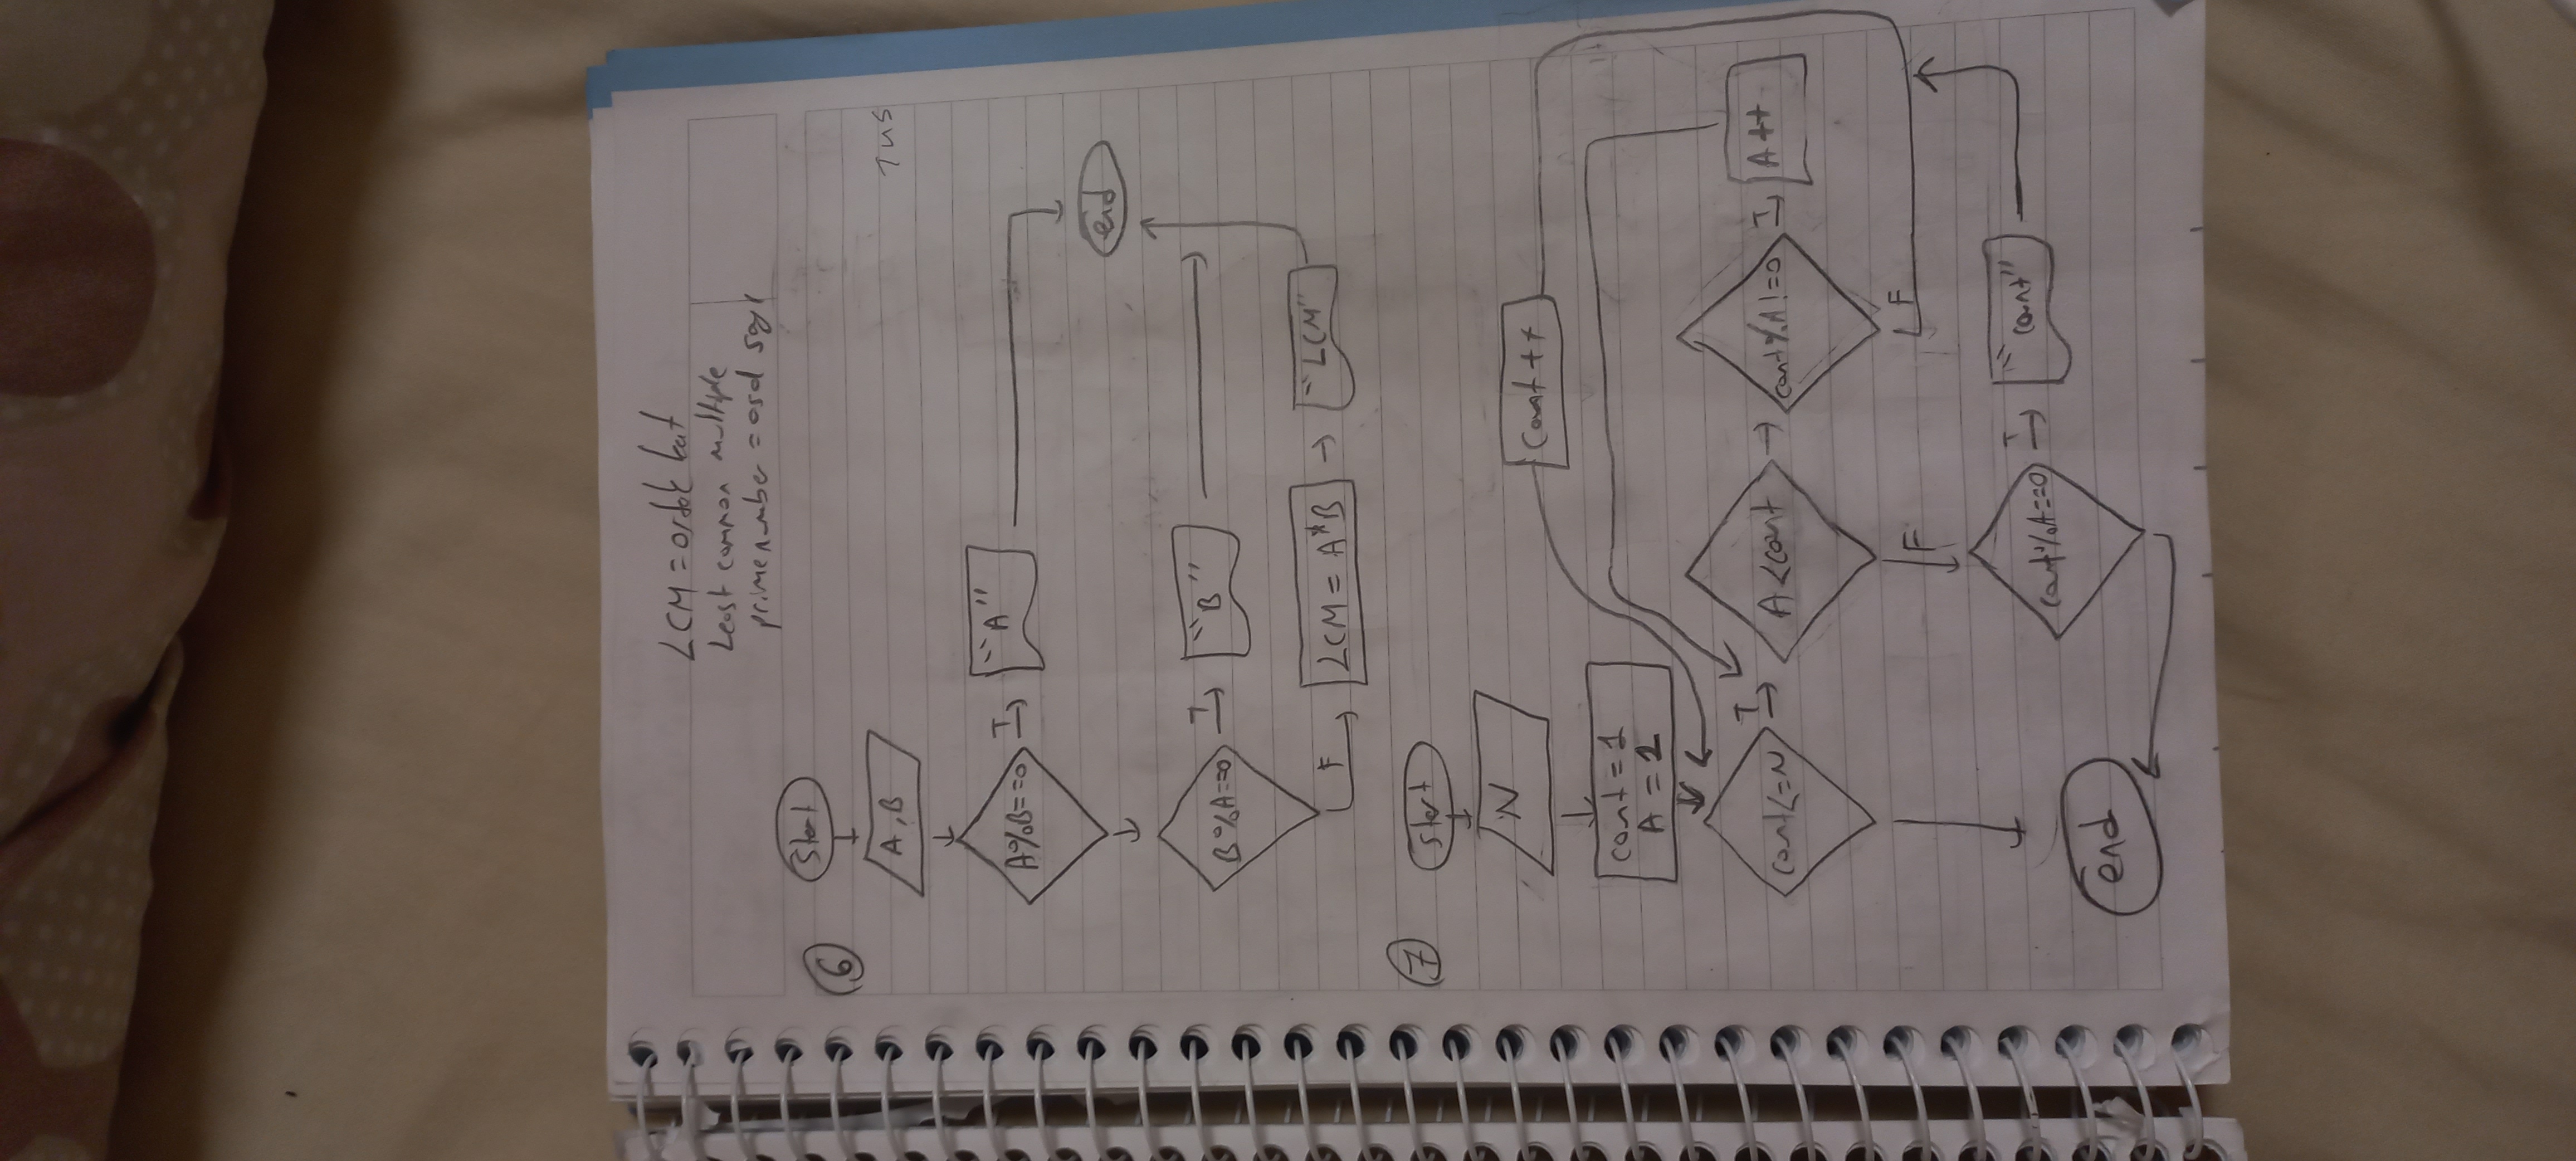 LCM = ortak kat
Least common multiple
prime number = asal sayı
6
Start
A, B
A%B==0
T
"A"
end
B%A==0
T
"B"
F
LCM = A*B
"LCM"
7
start
N
Count++
count=1
A=2
count<=N
T
A<count
count%A!=0
T
A++
F
F
count%A==0
T
"count"
end